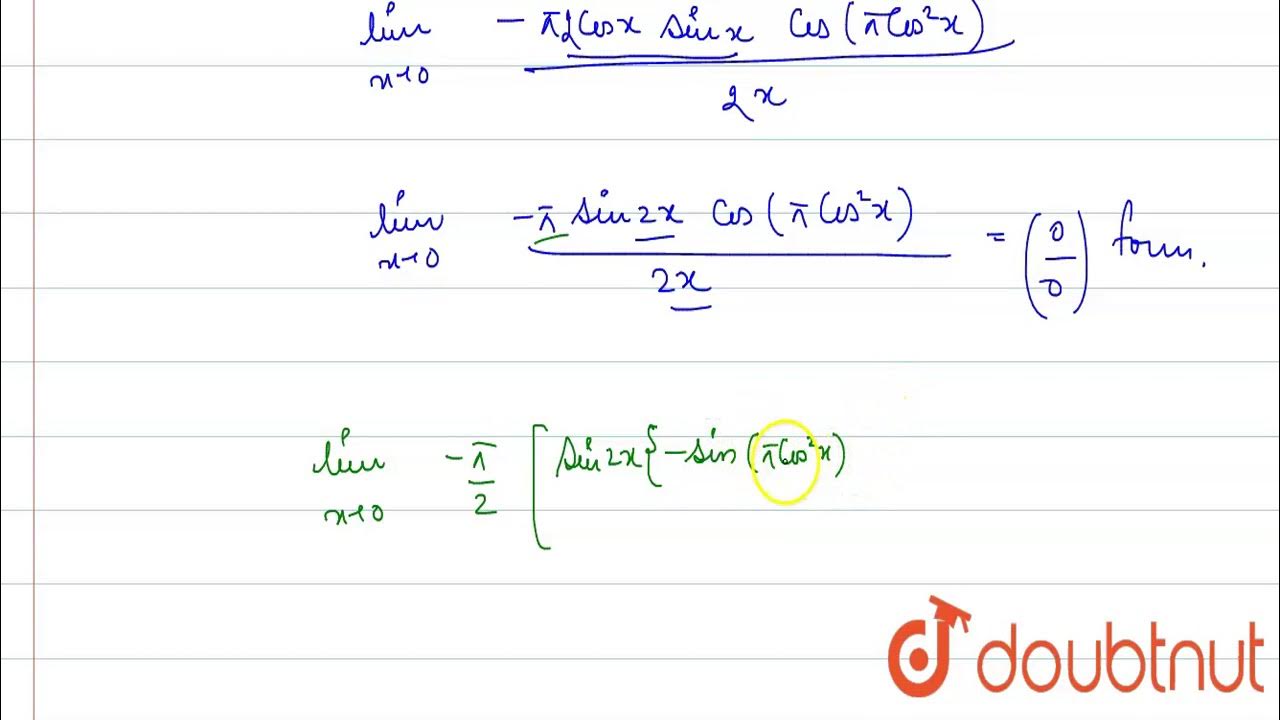 lim x→0 - π2Cosx sinx Cos(πCos²x)
2x
lim x→0 -π sin2x Cos(πCos²x) = (0/0) form.
2x
lim x→0 -π/2 [sin2x{-sin(πCos²x)
doubtnut